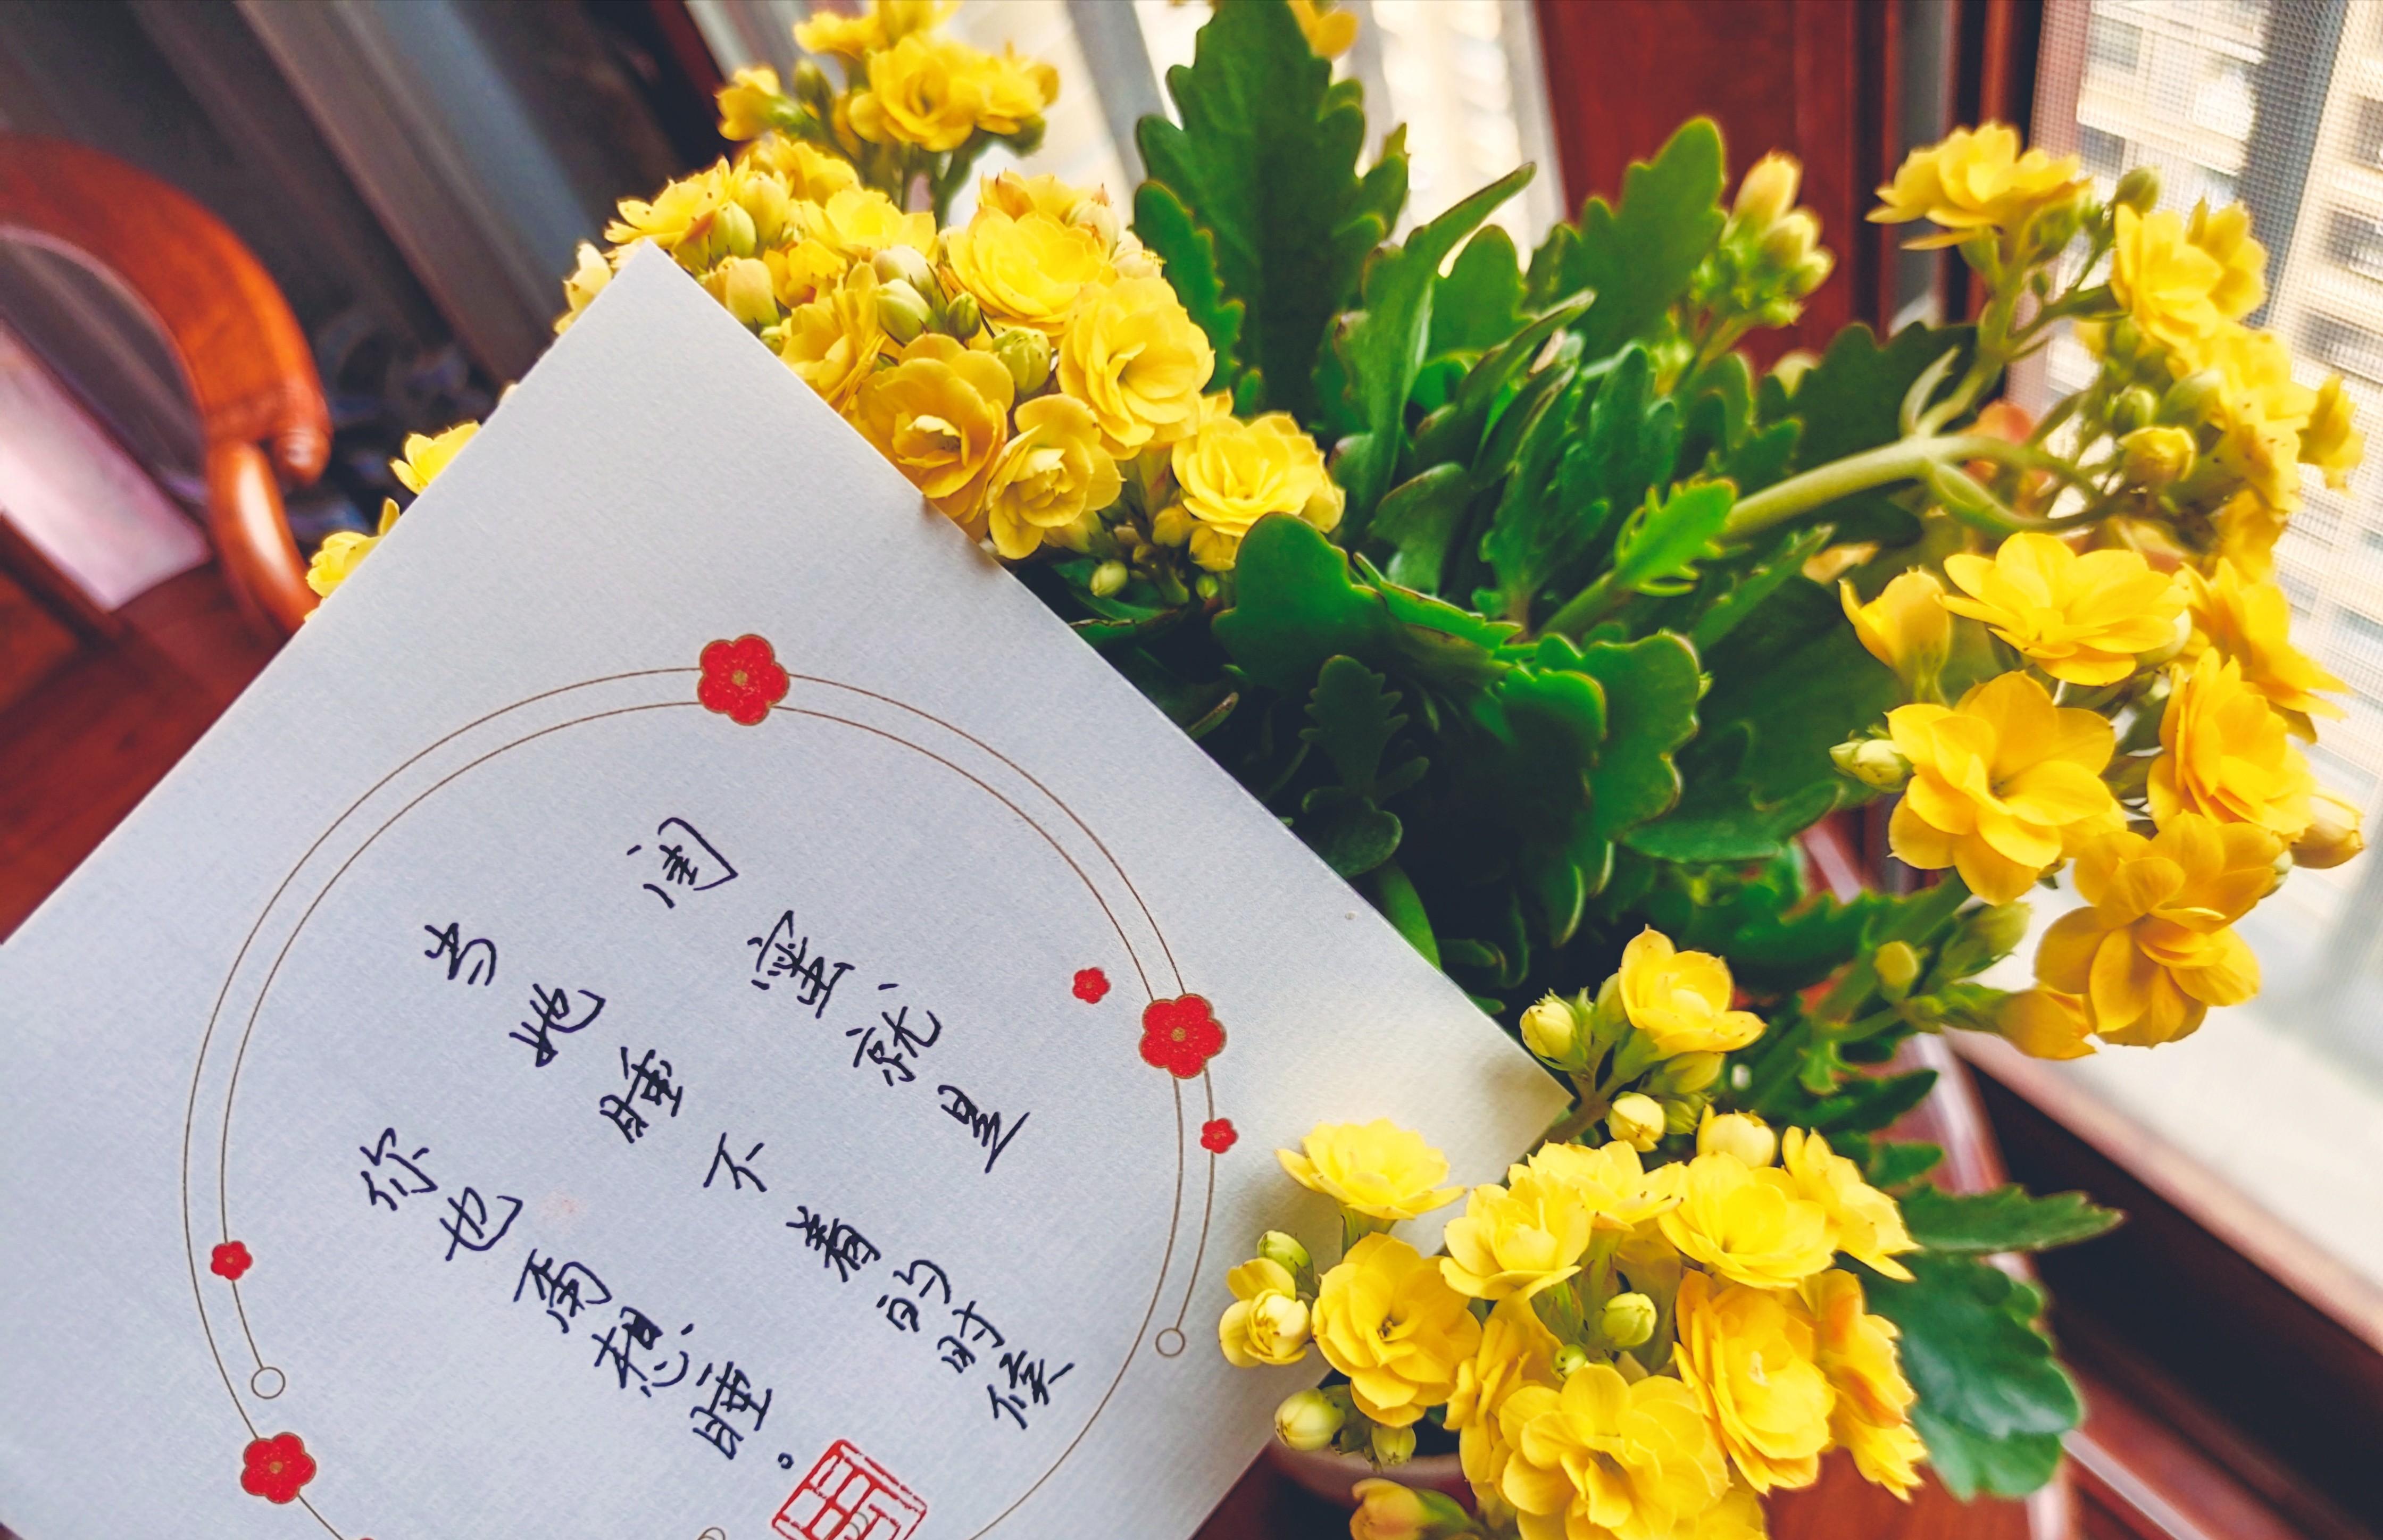 闺蜜就是
当她睡不着的时候
你也甭想睡。